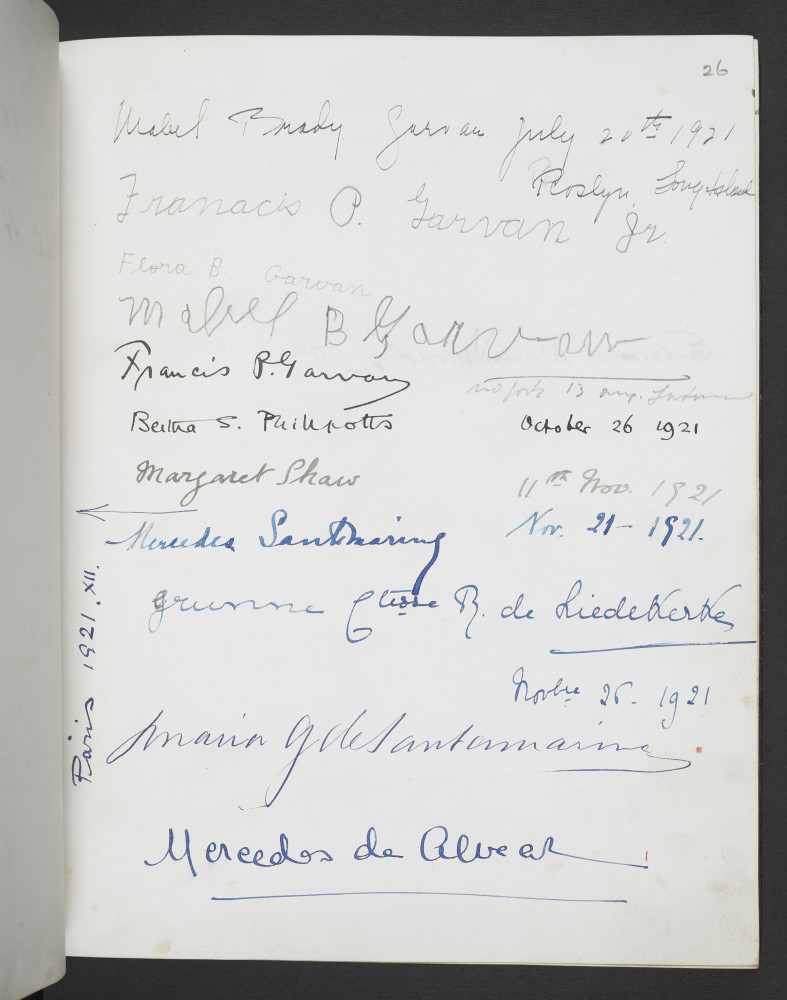 26
Mabel Brady Garvan July 20th 1921
Roslyn, Long Island
Franacis P. Garvan Jr.
Flora B. Garvan
Mabel B Garvan
Francis P. Garvan
13
Bertha S. Phillpotts October 26 1921
Margaret Shaw 11th Nov. 1921
Mercedes Santamarina Nov. 21 - 1921.
Grunne Ctesse R. de Liedekerke
Novbre 26 - 1921
Maria G de Santamarina.
Mercedes de Alvear
Paris 1921. XII.